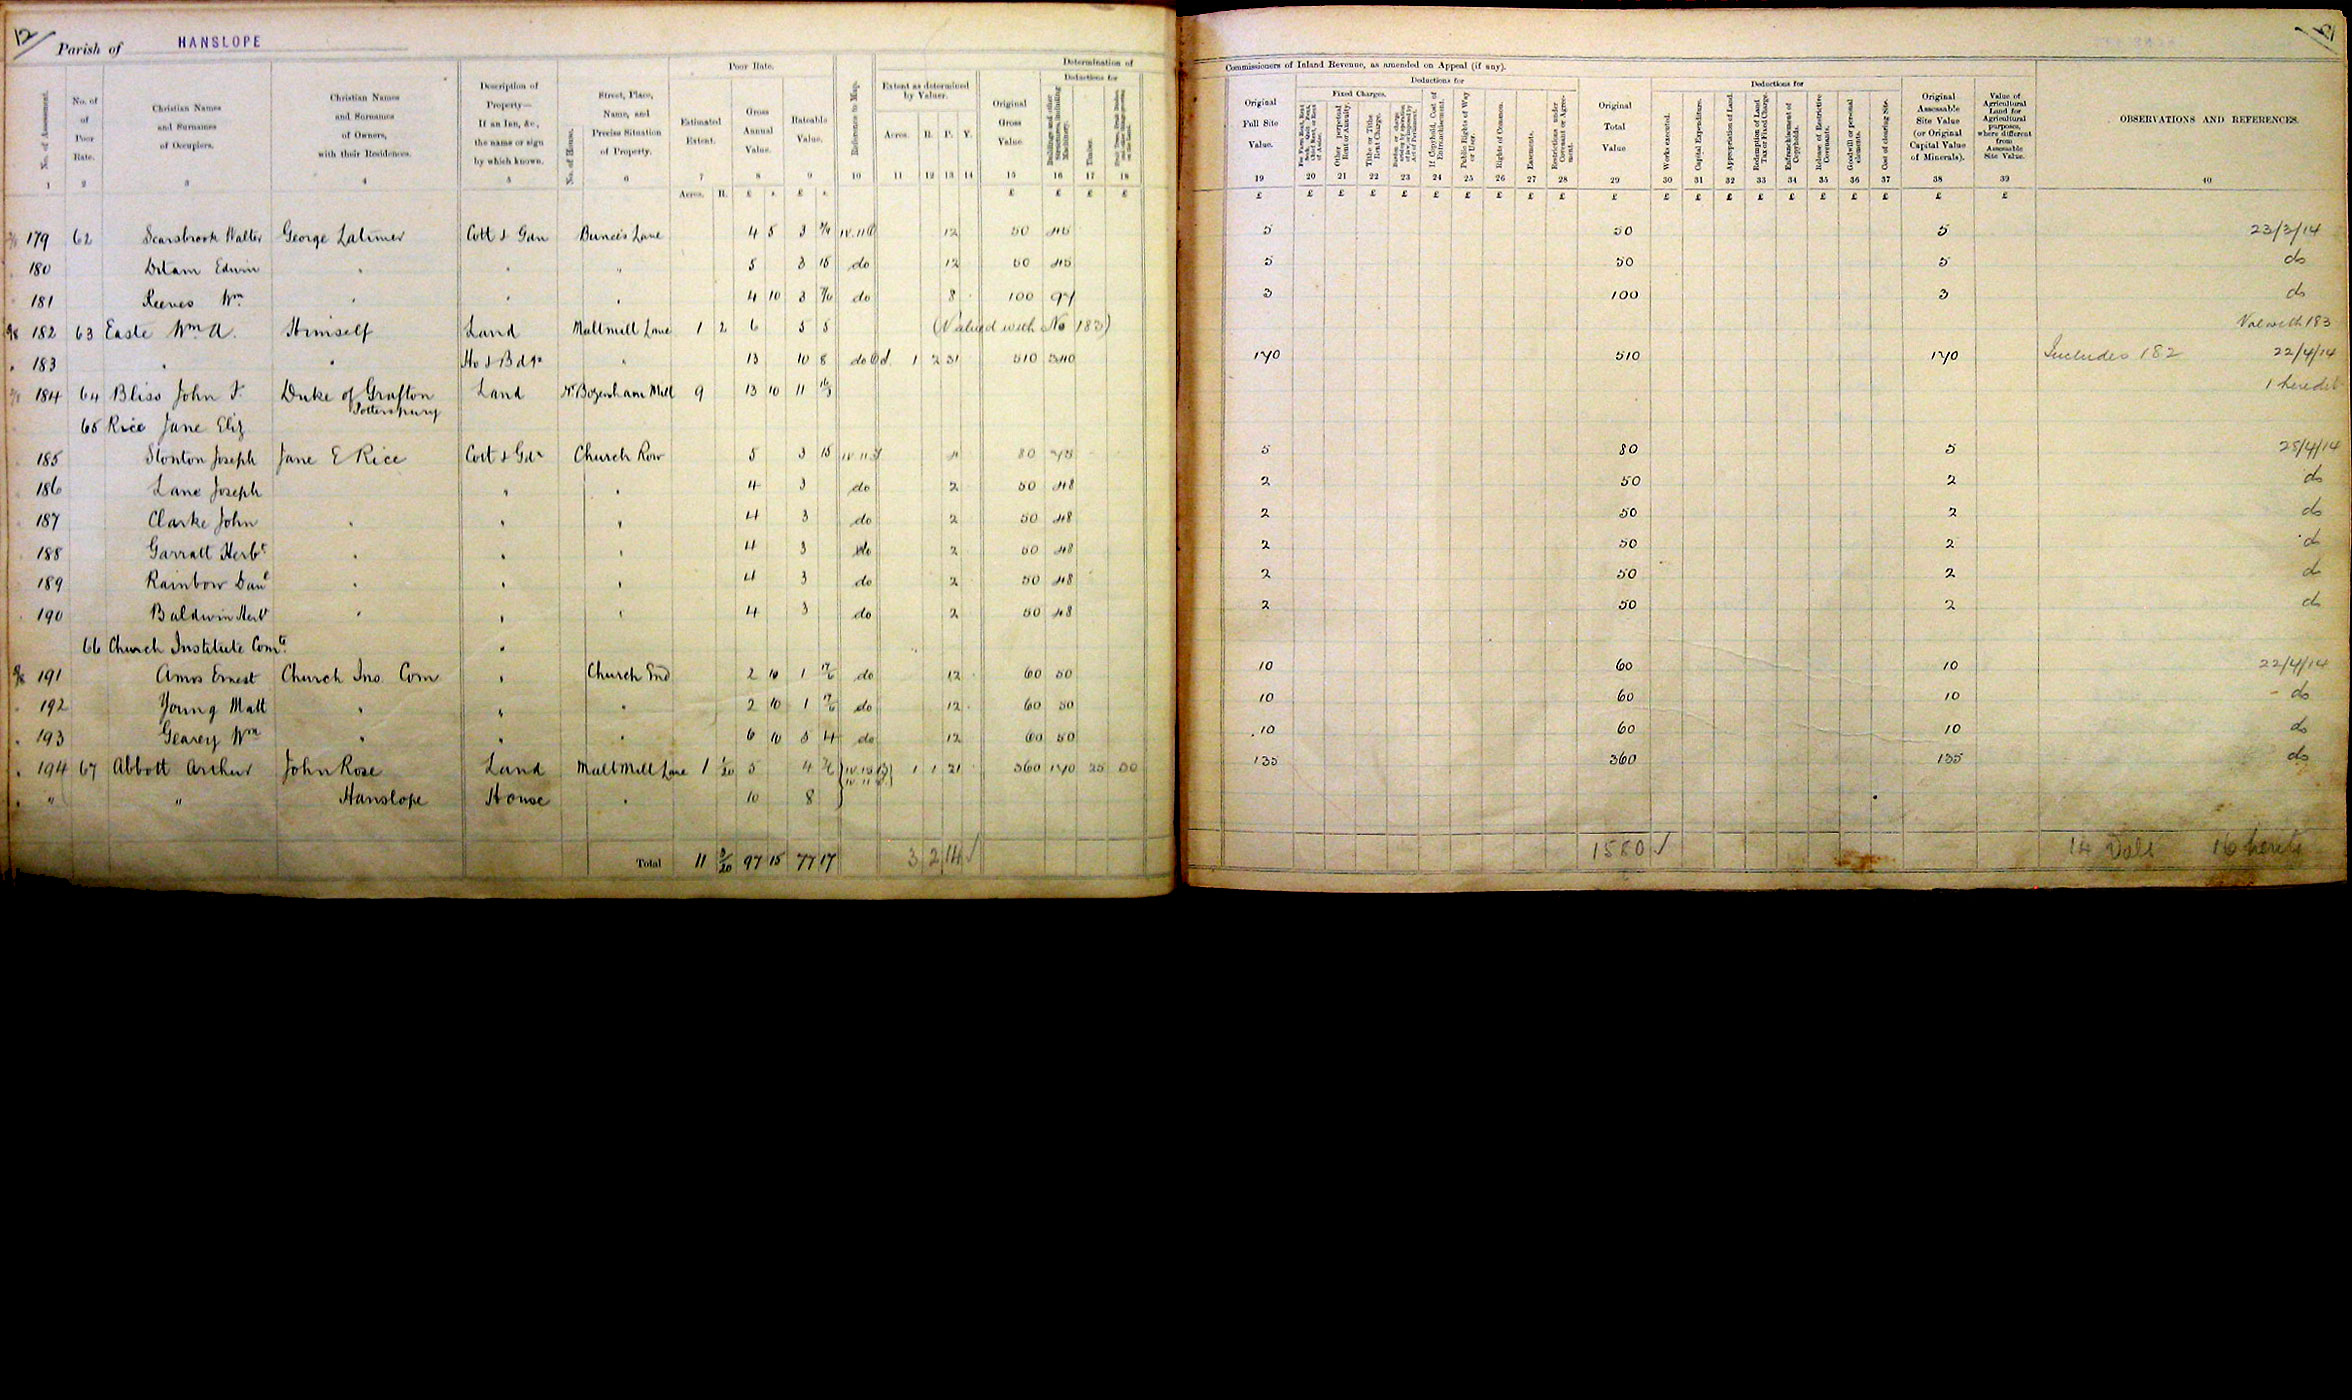 12
Parish of HANSLOPE
Poor Rate.
Determination of
No. of Assessment.
No. of Poor Rate.
Christian Names and Surnames of Occupiers.
Christian Names and Surnames of Owners, with their Residences.
Description of Property— If an Inn, &c., the name or sign by which known.
No. of House.
Street, Place, Name, and Precise Situation of Property.
Estimated Extent.
Gross Annual Value.
Rateable Value.
Reference to Map.
Extent as determined by Valuer.
Acres. R. P. Y.
Original Gross Value.
Deductions for
Buildings and other Structures, including Machinery.
Timber.
1 2 3 4 5 6 7 8 9 10 11 12 13 14 15 16 17 18
Acres. R. £ s. £ s. £ £ £ £
179 62 Scarsbrook Walter George Latimer Cott & Gdn Bunce's Lane 4 5 3 12 50 45
180 Edwin " " " 5 3 15 do 12 50 45
181 Reeves Wm " " " 4 10 3 do 8 100 97
182 63 Easte Wm A. Himself Land Maltmill Lane 1 2 6 5 5 (Valued with No 183)
183 " " Ho & Bdgs " 13 10 8 do 1 2 31 510 340
184 64 Bliss John T. Duke of Grafton Land Nr Bozenham Mill 9 13 10 11
Potterspury
65 Rice Jane Eliz
185 Stonton Joseph Jane E Rice Cott & Gdn Church Row 5 3 15 80 75
186 Lane Joseph " " 4 3 do 2 50 48
187 Clarke John " " " 4 3 do 2 50 48
188 Garratt Herbt " " " 4 3 do 2 50 48
189 Rainbow Danl " " " 4 3 do 2 50 48
190 Baldwin Herbt " " " 4 3 do 2 50 48
66 Church Institute Comte "
191 Amos Ernest Church Ins. Com " Church End 2 10 1 17/6 do 12 60 50
192 Young Matt " " " 2 10 1 17/6 do 12 60 50
193 Gearey Wm " " " 6 10 5 4 do 12 60 50
194 67 Abbott Arthur John Rose Land Malt Mill Lane 1 1/20 5 4 1 1 21 360 170 25 30
" " Hanslope House " 10 8
Total 11 3/20 97 15 77 17 3 2 14 ✓
12
Commissioners of Inland Revenue, as amended on Appeal (if any).
Original Full Site Value.
Deductions for
Fixed Charges.
Fee Farm Rent, Rent Seck, Quit Rent, Chief Rent, or Rent of Assize.
Other perpetual Rent or Annuity.
Tithe or Tithe Rent Charge.
Burden or charge arising by operation of law, or imposed by Act of Parliament.
If Copyhold, Cost of Enfranchisement.
Public Rights of Way or User.
Rights of Common.
Easements.
Restrictions under Covenant or Agreement.
Original Total Value
Deductions for
Works executed.
Capital Expenditure.
Appropriation of Land.
Redemption of Land Tax or Fixed Charge.
Enfranchisement of Copyholds.
Release of Restrictive Covenants.
Goodwill or personal elements.
Cost of clearing Site.
Original Assessable Site Value (or Original Capital Value of Minerals).
Value of Agricultural Land for Agricultural purposes, where different from Assessable Site Value.
OBSERVATIONS AND REFERENCES.
19 20 21 22 23 24 25 26 27 28 29 30 31 32 33 34 35 36 37 38 39 40
£ £ £ £ £ £ £ £ £ £ £ £ £ £ £ £ £ £ £ £ £
5 50 5 23/3/14
5 50 5 do
3 100 3 do
Val with 183
170 510 170 Includes 182 22/4/14
1 heredit
5 80 5 28/4/14
2 50 2 do
2 50 2 do
2 50 2 do
2 50 2 do
2 50 2 do
10 60 10 22/4/14
10 60 10 do
10 60 10 do
135 360 135 do
1580 ✓ 14 Vals 16 heredts